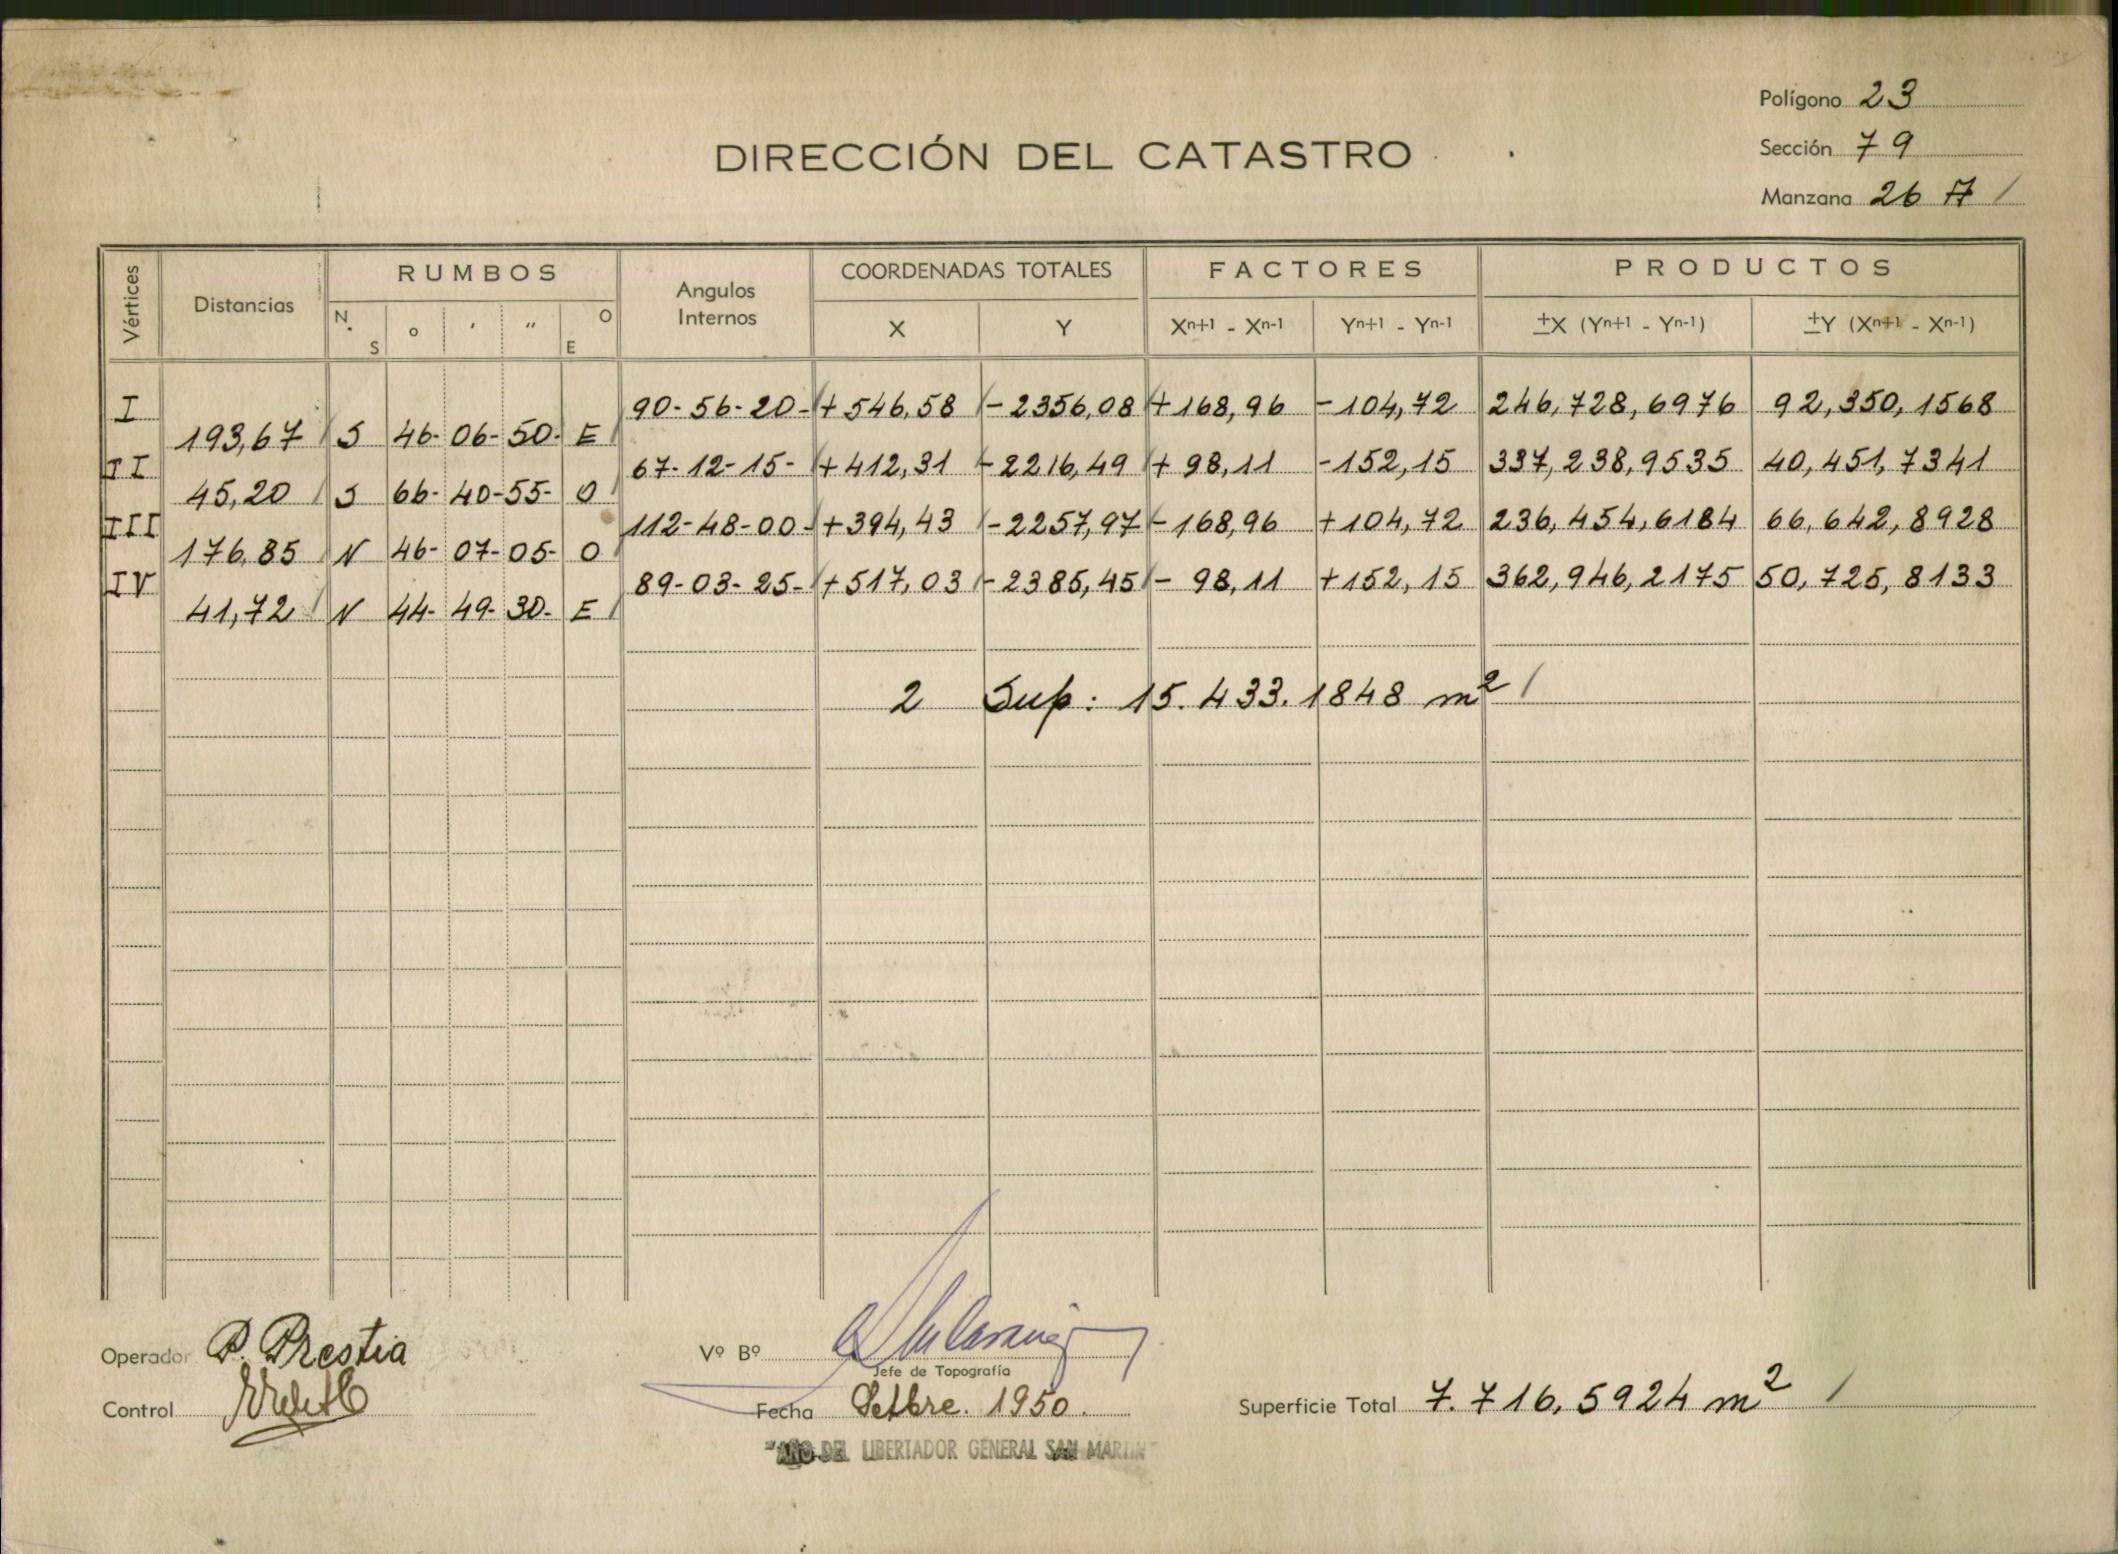 Polígono 23
DIRECCIÓN DEL CATASTRO
Sección 79
Manzana 26 A /
Vértices Distancias RUMBOS Angulos Internos COORDENADAS TOTALES FACTORES PRODUCTOS
N. S o ' " O E X Y Xn+1 - Xn-1 Yn+1 - Yn-1 ±X (Yn+1 - Yn-1) ±Y (Xn+1 - Xn-1)
I 90-56-20- /+546,58 /-2356,08 /+168,96 -104,72 246,728,6976 92,350,1568
193,67 / S 46- 06- 50- E /
II 67-12-15- /+412,31 /-2216,49 /+98,11 -152,15 337,238,9535 40,451,7341
45,20 / S 66- 40- 55- O /
III 112-48-00- /+394,43 /-2257,97 /-168,96 +104,72 236,454,6184 66,642,8928
176,85 / N 46- 07- 05- O /
IV 89-03-25- /+517,03 /-2385,45 /-98,11 +152,15 362,946,2175 50,725,8133
41,72 / N 44- 49- 30- E /
2 Sup: 15.433.1848 m² /
Operador P. Prestia
Vº Bº
Jefe de Topografía
Control
Fecha Setbre. 1950.
Superficie Total 7.716,5924 m² /
"AÑO DEL LIBERTADOR GENERAL SAN MARTIN"